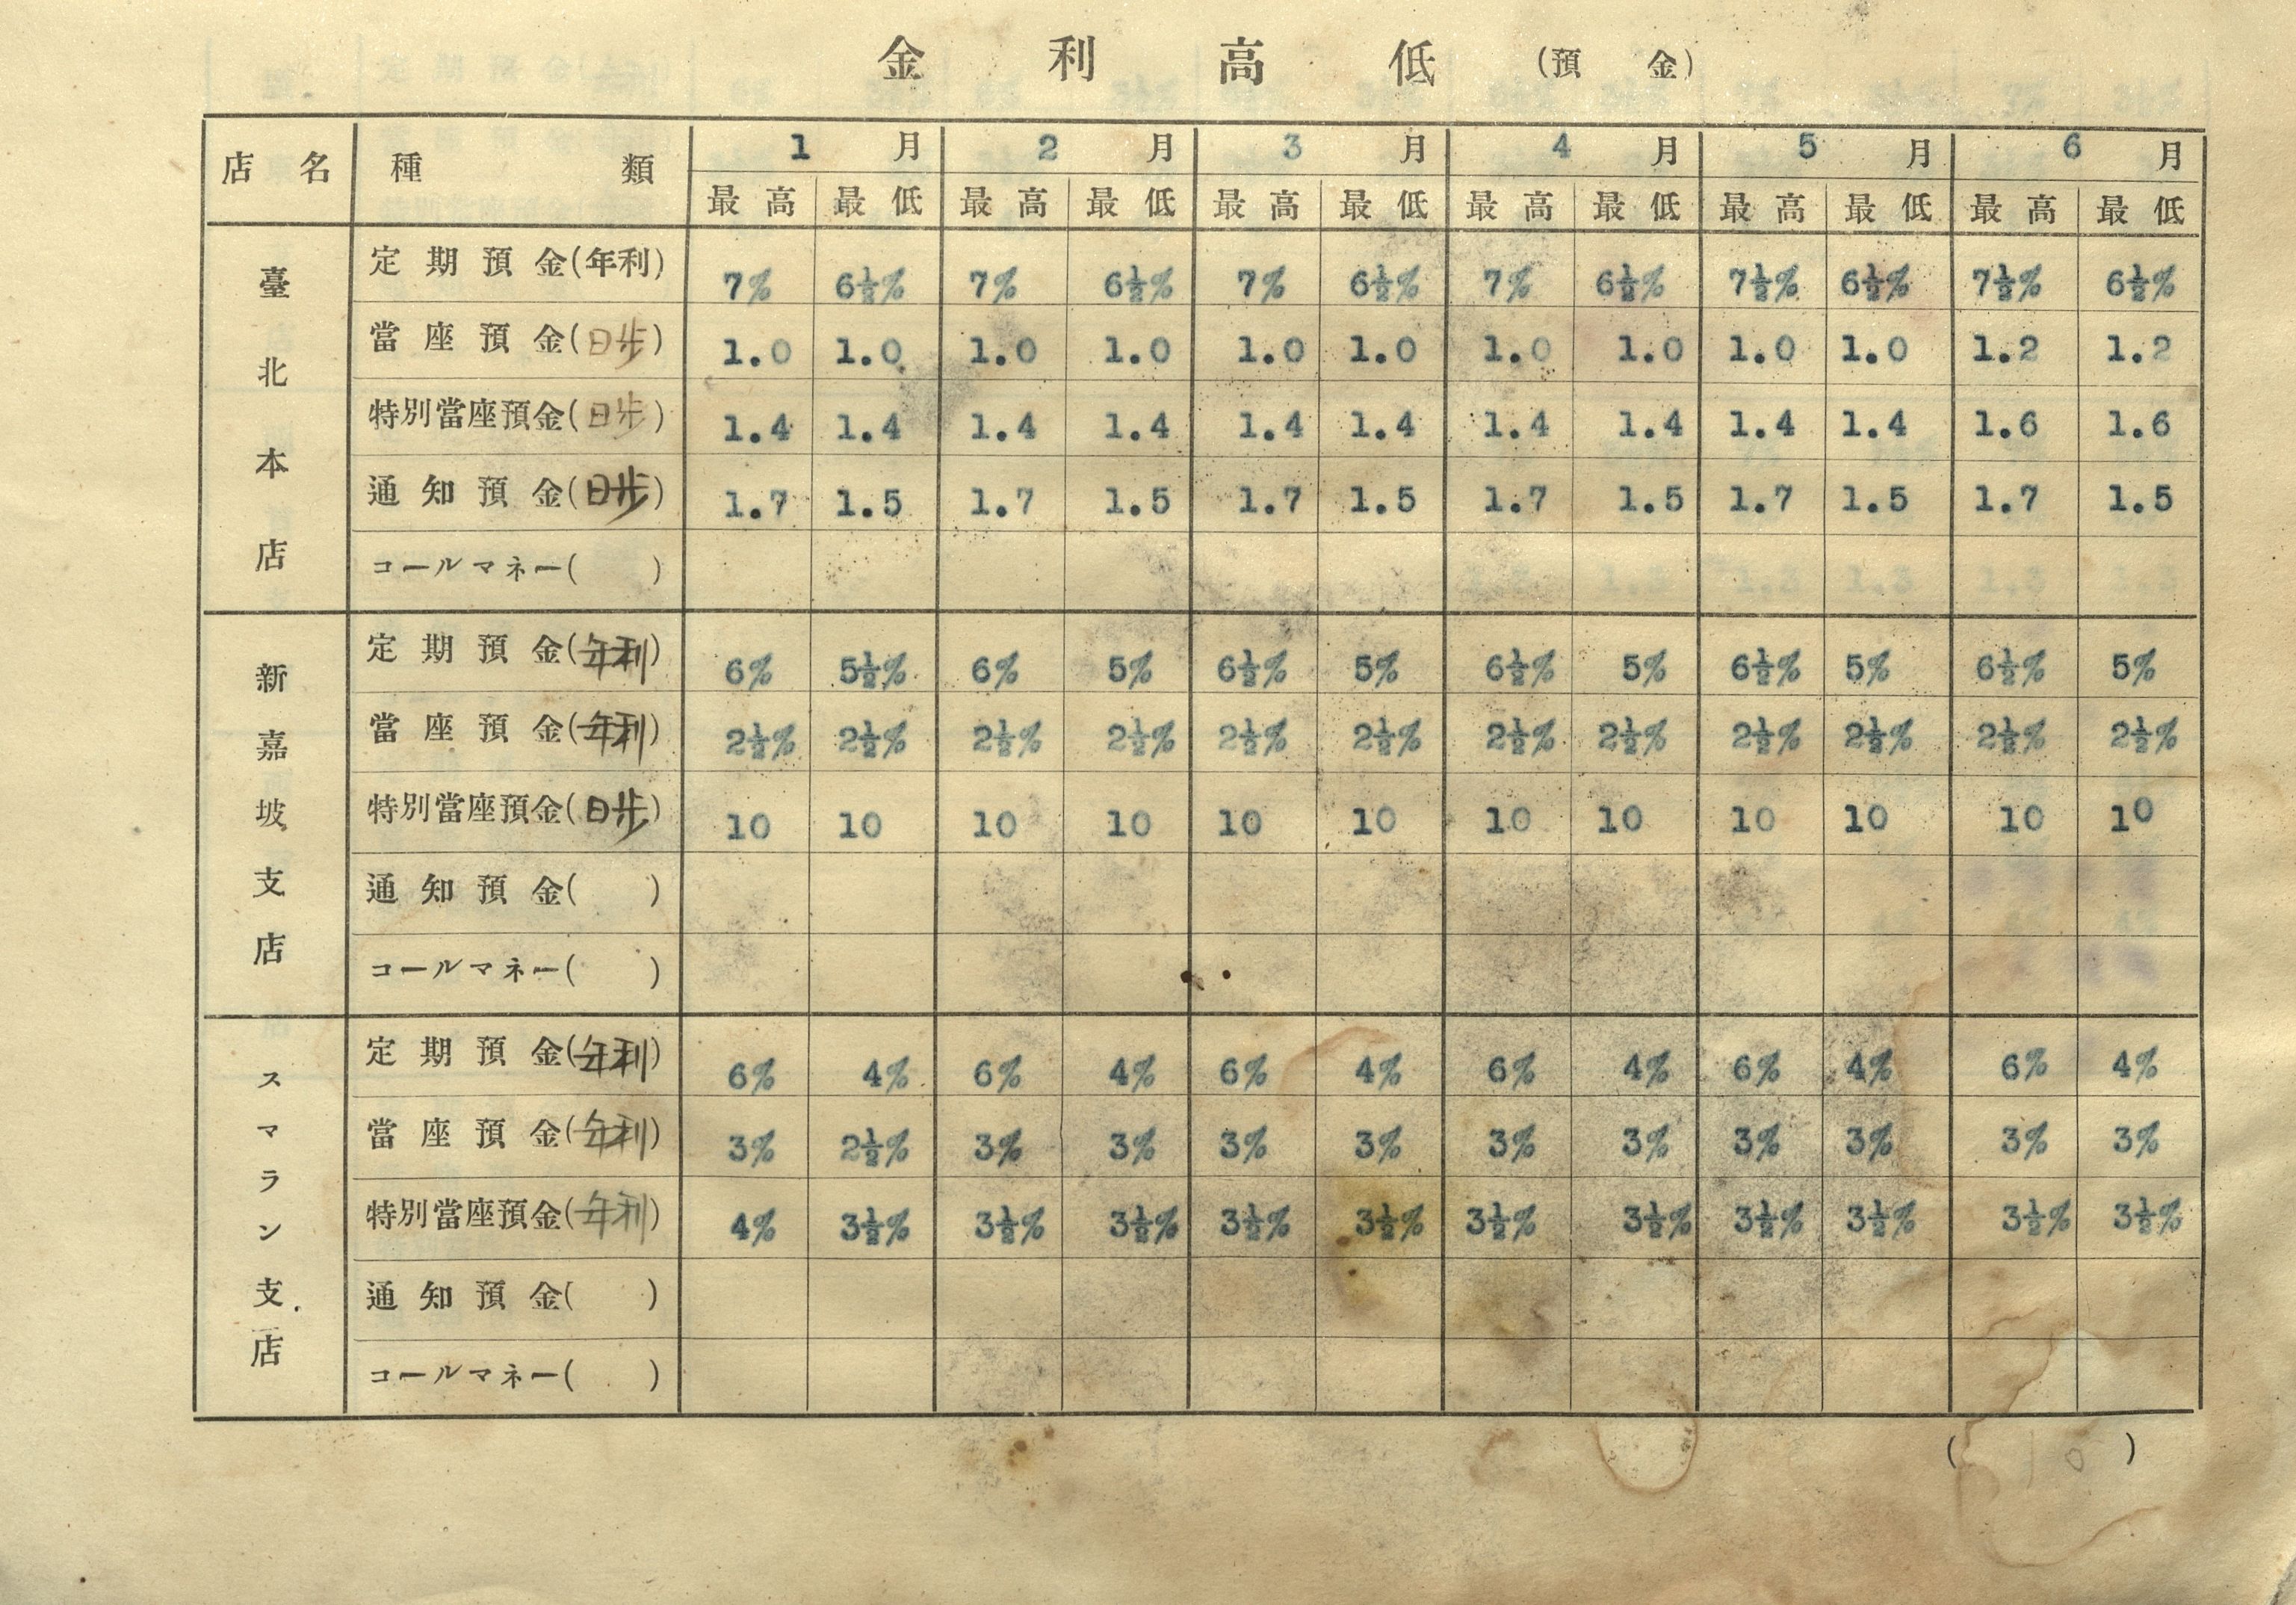 金利高低 (預金)
店名 種類 1月 2月 3月 4月 5月 6月
最高 最低 最高 最低 最高 最低 最高 最低 最高 最低 最高 最低
臺北本店
定期預金(年利) 7% 6½% 7% 6½% 7% 6½% 7% 6½% 7½% 6½% 7½% 6½%
當座預金(日歩) 1.0 1.0 1.0 1.0 1.0 1.0 1.0 1.0 1.0 1.0 1.2 1.2
特別當座預金(日歩) 1.4 1.4 1.4 1.4 1.4 1.4 1.4 1.4 1.4 1.4 1.6 1.6
通知預金(日歩) 1.7 1.5 1.7 1.5 1.7 1.5 1.7 1.5 1.7 1.5 1.7 1.5
コールマネー( )
新嘉坡支店
定期預金(年利) 6% 5½% 6% 5% 6½% 5% 6½% 5% 6½% 5% 6½% 5%
當座預金(年利) 2½% 2½% 2½% 2½% 2½% 2½% 2½% 2½% 2½% 2½% 2½% 2½%
特別當座預金(日歩) 10 10 10 10 10 10 10 10 10 10 10 10
通知預金( )
コールマネー( )
スマラン支店
定期預金(年利) 6% 4% 6% 4% 6% 4% 6% 4% 6% 4% 6% 4%
當座預金(年利) 3% 2½% 3% 3% 3% 3% 3% 3% 3% 3% 3% 3%
特別當座預金(年利) 4% 3½% 3½% 3½% 3½% 3½% 3½% 3½% 3½% 3½% 3½% 3½%
通知預金( )
コールマネー( )
( 10 )